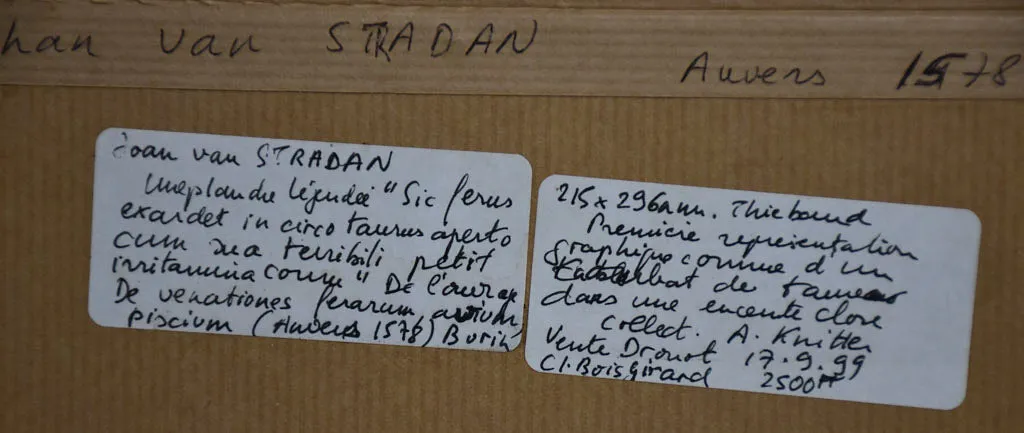 han van STRADAN
Anvers 1578
Joan van STRADAN
Une planche légendée "Sic ferus
exardet in circo taurus aperto
cum sua terribili petit
irritamina cornu" De l'ouvrage
De venationes ferarum, avium,
piscium (Anvers 1578) Burin
215 x 296 mm. Thiebaud
Première représentation
graphique connue d'un
combat de taureaux
dans une enceinte close
Collect. A. Knitter
Vente Drouot 17.9.99
Cl. Boisgirard 2500